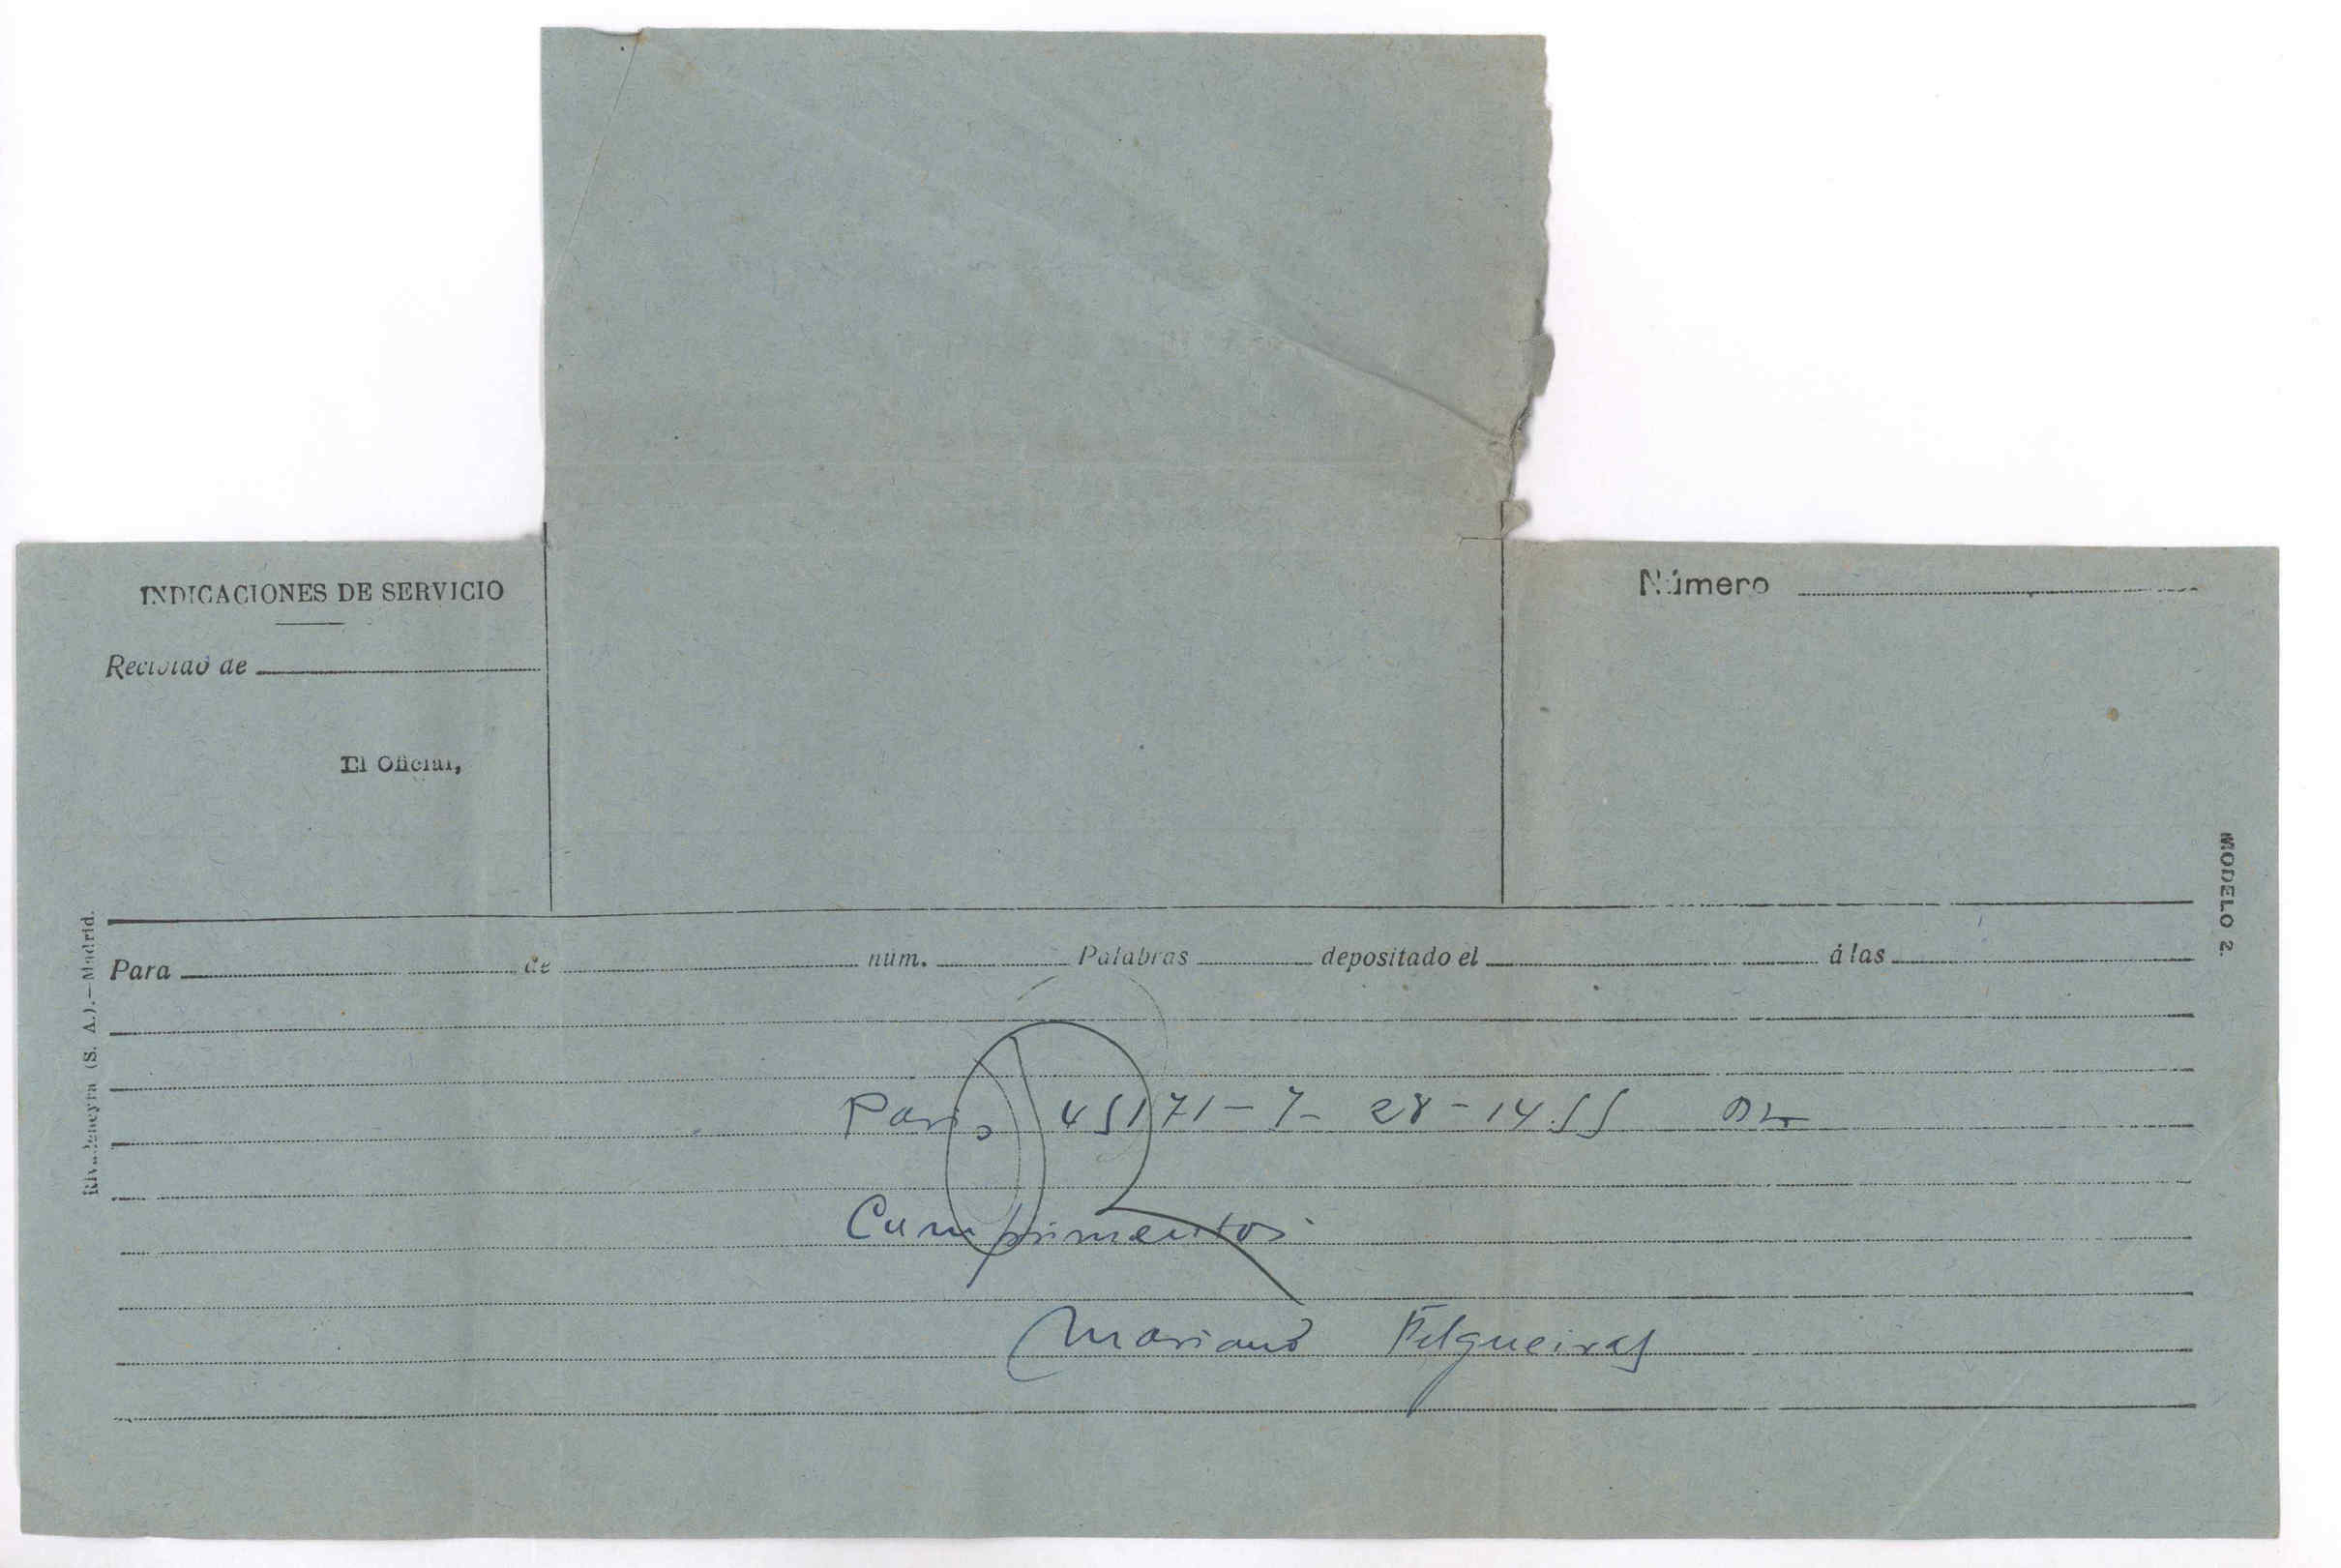 INDICACIONES DE SERVICIO
Recibido de
El Oficial,
Número
MODELO 2.
Rivadeneyra (S. A.).—Madrid.
Para de núm. Palabras depositado el á las
Paris 45171 - 7 - 28 - 14.55
Cumprimentos
Mariano Felgueiras